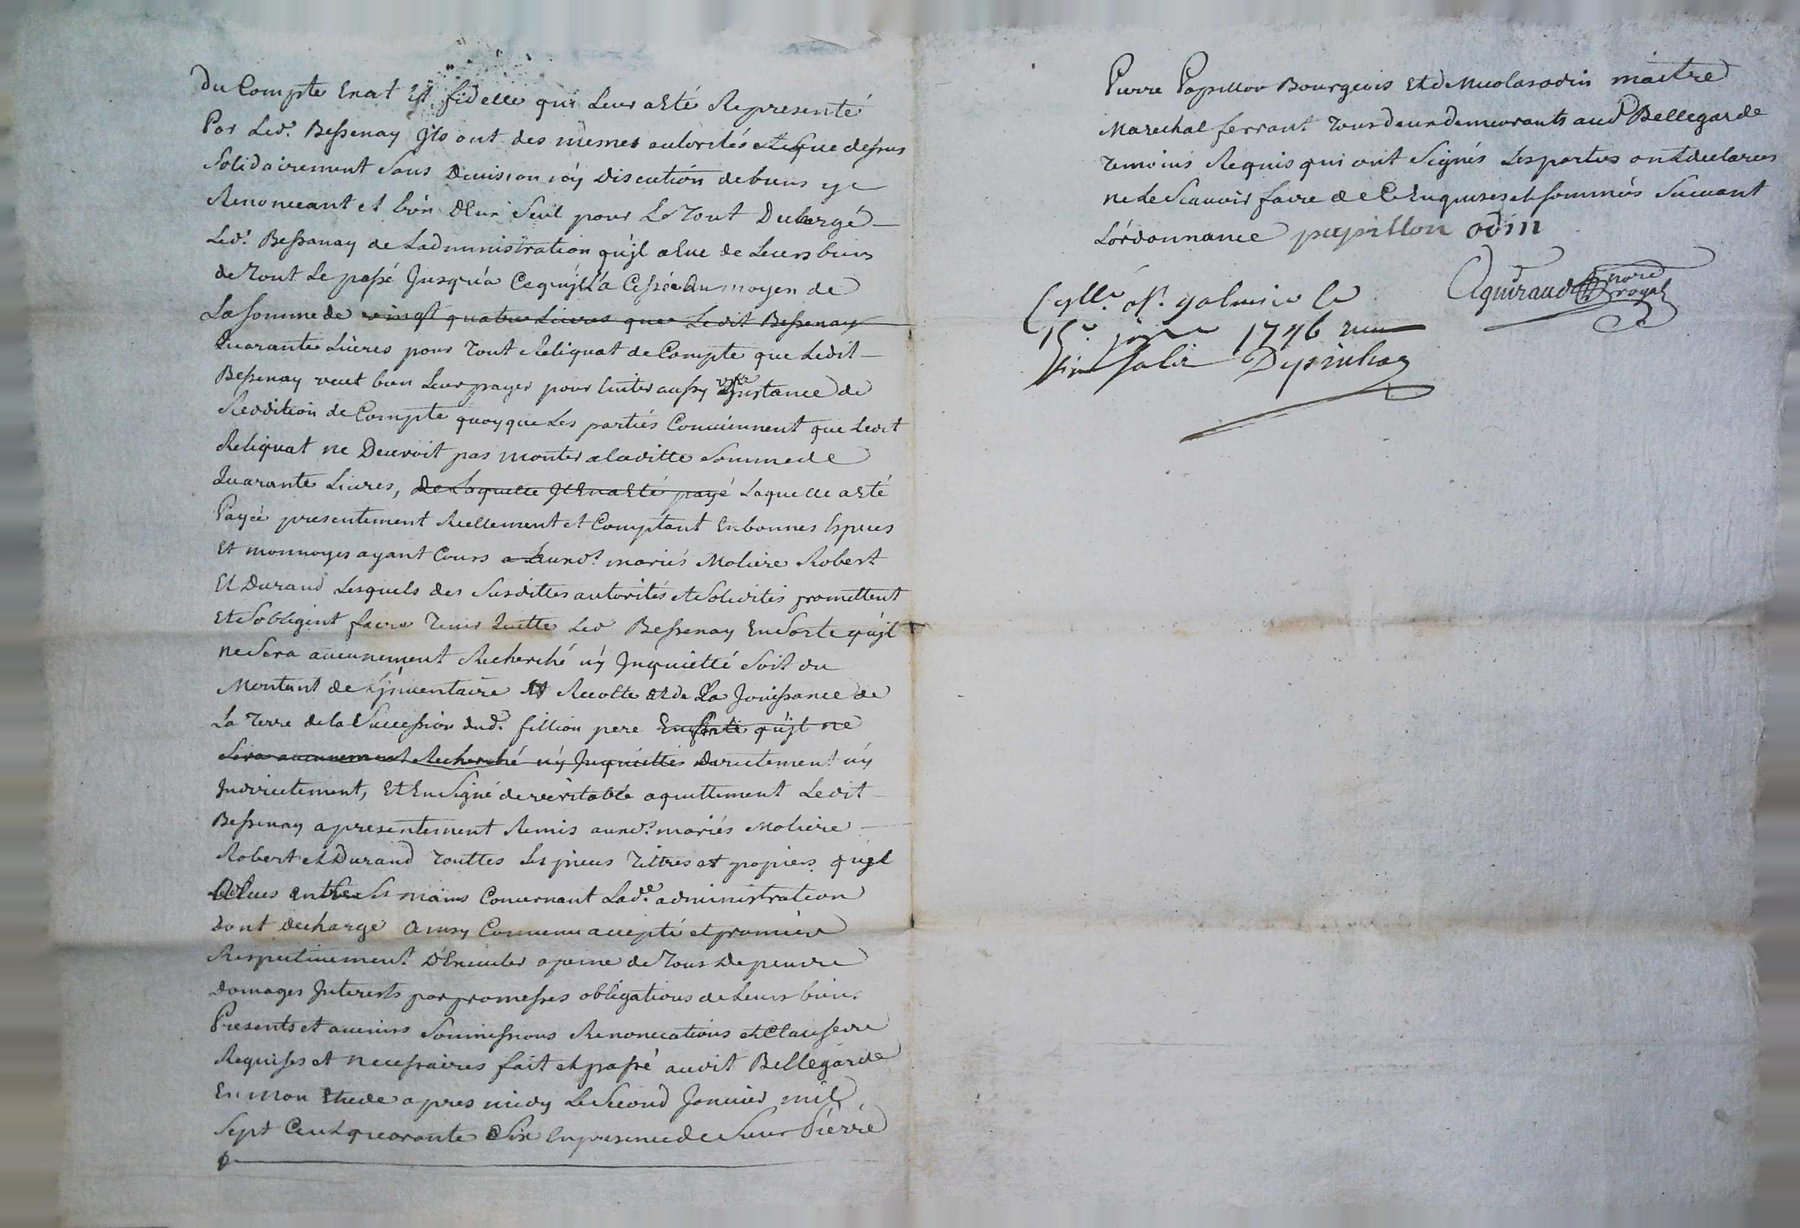 Du Compte Exat Et fidelle qui Leur a Eté Representé
Par Led.t Bessenay Jls ont des mesmes autorités et que dessus
Solidairement Sans Division n'y Discution de biens y
Renonceant et bien D'Un Seul pour Le Tout Dechargé
Led.t Bessenay de Ladministration qu'jl a Eue de Leurs biens
de Tout Le passé Jusqu'a Ce qu'jl a Cessé Au moyen de
La Somme de vingt quatre Livres que Ledit Bessenay
Quarante Livres pour Tout Reliquat de Compte que Ledit
Bessenay veut bien Leur payer pour Eviter aussy Jnstance de
Reddition de Compte quoyque Les partiés Conviennent que Ledit
Reliquat ne Devroit pas monter a Laditte Somme de
Quarante Livres, De Laquelle Jl En a Eté payé Laquelle a Eté
Payeé presentement Reellement et Comptant En bonnes Especes
Et monnoyes ayant Cours auxd.t mariés Moliere Robert
Et Durand Lesquels des Susdittes autorités et Solidités promettent
Et S'obligent faire Tenir Quitte Led Bessenay En Sorte qu'jl
ne Sera aucunement Recherché n'y Jnquietté Soit du
Montant de L'jnventaire Et Recolte et de La Jouissance de
La Terre de la Succession dud.t fillion pere En Sorte qu'jl ne
Sera aucunement Recherché n'y Jnquietté Directement n'y
Jndirectement, Et En Signe de veritable aquittement Ledit
Bessenay a presentement Remis auxd.t mariés Moliere
Robert et Durand Touttes Les pieces Tittres et papiers qu'jl
Entre Ses mains Concernant Lad.e administration
Dont decharge Ainsy Convenu accepté et promis
Respectivement D'Executer a peine de Tous Depens
Domages Jnterests par promesses obligations de Leurs biens
Presents et avenirs Soumissions Renonciations et Clauses
Requises et necessaires fait et passé audit Bellegarde
En mon Etude apres midy Le Second Janvier mil
Sept Cent quarante Six En presence de Sieur Pierre
Pierre Papillon Bourgeois Et de Nicolas odin maitre
Marechal ferrant Tous deux demeurants aud.t Bellegarde
Temoins Requis qui ont Signés Les parties ont declarées
ne Le Scavoir faire de Ce Enquises et Sommés Suivant
L'ordonnance papillon odin
Aguiraud nore
royal
Cllé a St. galmier Le
15e janer 1746 Reçu
Depinhac